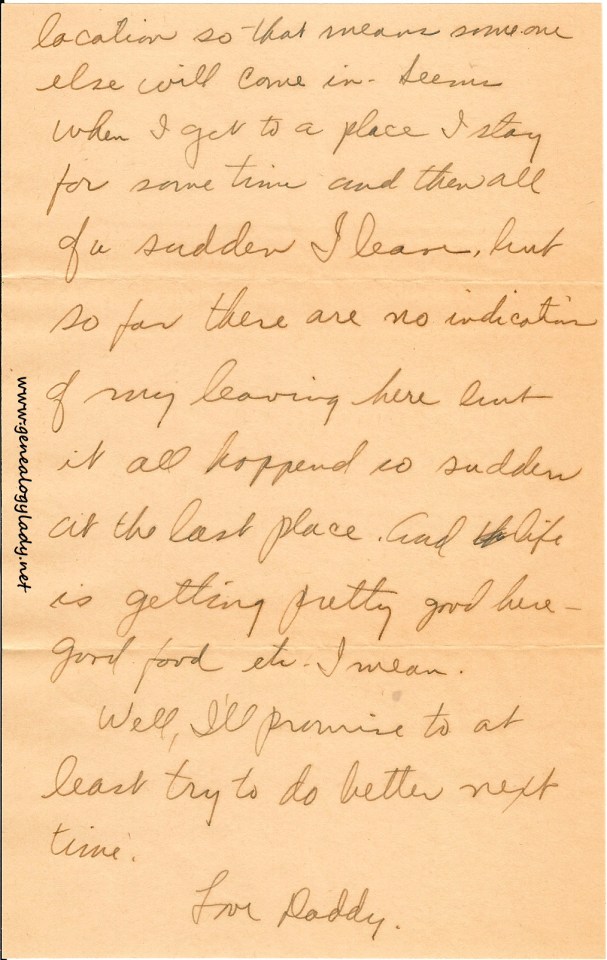 location so that means someone
else will come in - Seems
when I get to a place I stay
for some time and then all
of a sudden I leave, but
so far there are no indication
of my leaving here but
it all happend so sudden
at the last place. And life
is getting pretty good here -
good food etc - I mean.
Well, I'll promise to at
least try to do better next
time.
Love Daddy.
www.genealogylady.net